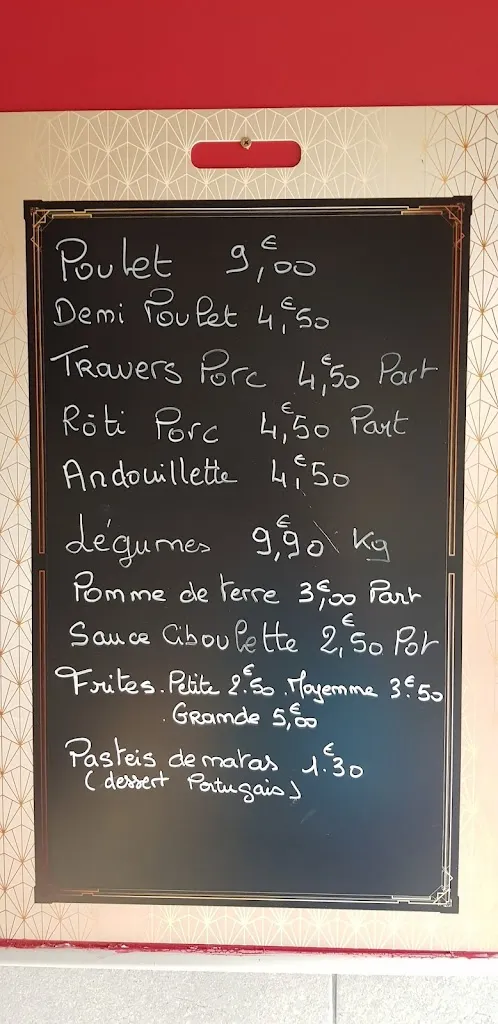 Poulet 9,€00
Demi Poulet 4,€50
Travers Porc 4,€50 Part
Rôti Porc 4,€50 Part
Andouillette 4,€50
Légumes 9,€90 \ Kg
Pomme de terre 3,€00 Part
Sauce Ciboulette 2,€50 Pot
Frites. Petite 2.€50. Moyenne 3.€50
. Grande 5,€00
Pasteis de matas 1.€30
(dessert Portugais)